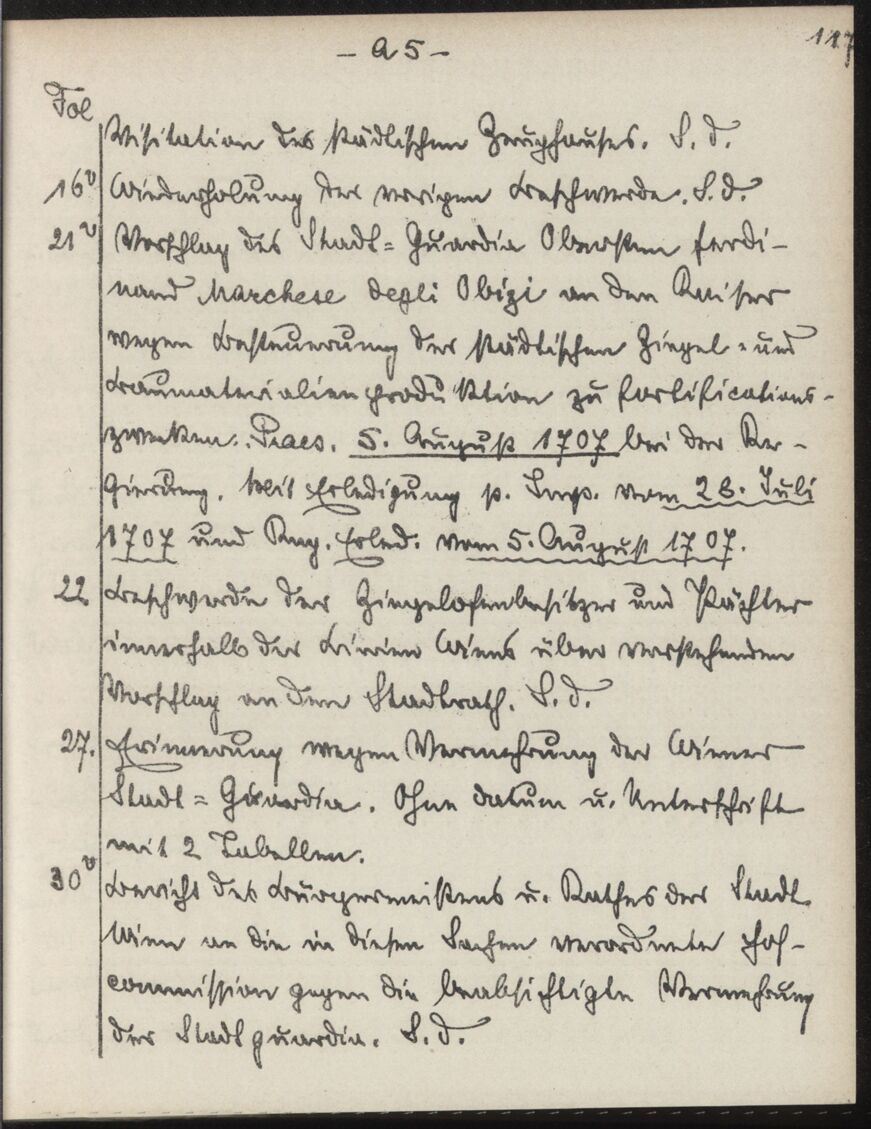 117
- a5 -
Fol
Visitation des städtischen Zeughauses. S. d.
16v Wiederholung der vorigen Beschwerde. S. d.
21v Vorschlag des Stadt=Guardia Obersten Ferdi-
nand Marchese degli Obizi an den Kaiser
wegen Besteuerung der städtischen Ziegel- und
Baumaterialienproduktion zu Fortifications-
zwecken. Praes. 5. August 1707 bei der Re-
gierung. Mit Erledigung p. Imp. vom 28. Juli
1707 und Reg. Erled. vom 5. August 1707.
22 Beschwerde der Ziegelofenbesitzer und Pächter
innerhalb der Linien Wiens über vorstehenden
Vorschlag an den Stadtrath. S. d.
27. Erinnerung wegen Vermehrung der Wiener
Stadt=Guardia. Ohne Datum u. Unterschrift
mit 2 Tabellen.
30v Bericht des Bürgermeisters u. Rathes der Stadt
Wien an die in diesen Sachen verordnete Hof-
commission gegen die beabsichtigte Vermehrung
der Stadtguardia. S. d.